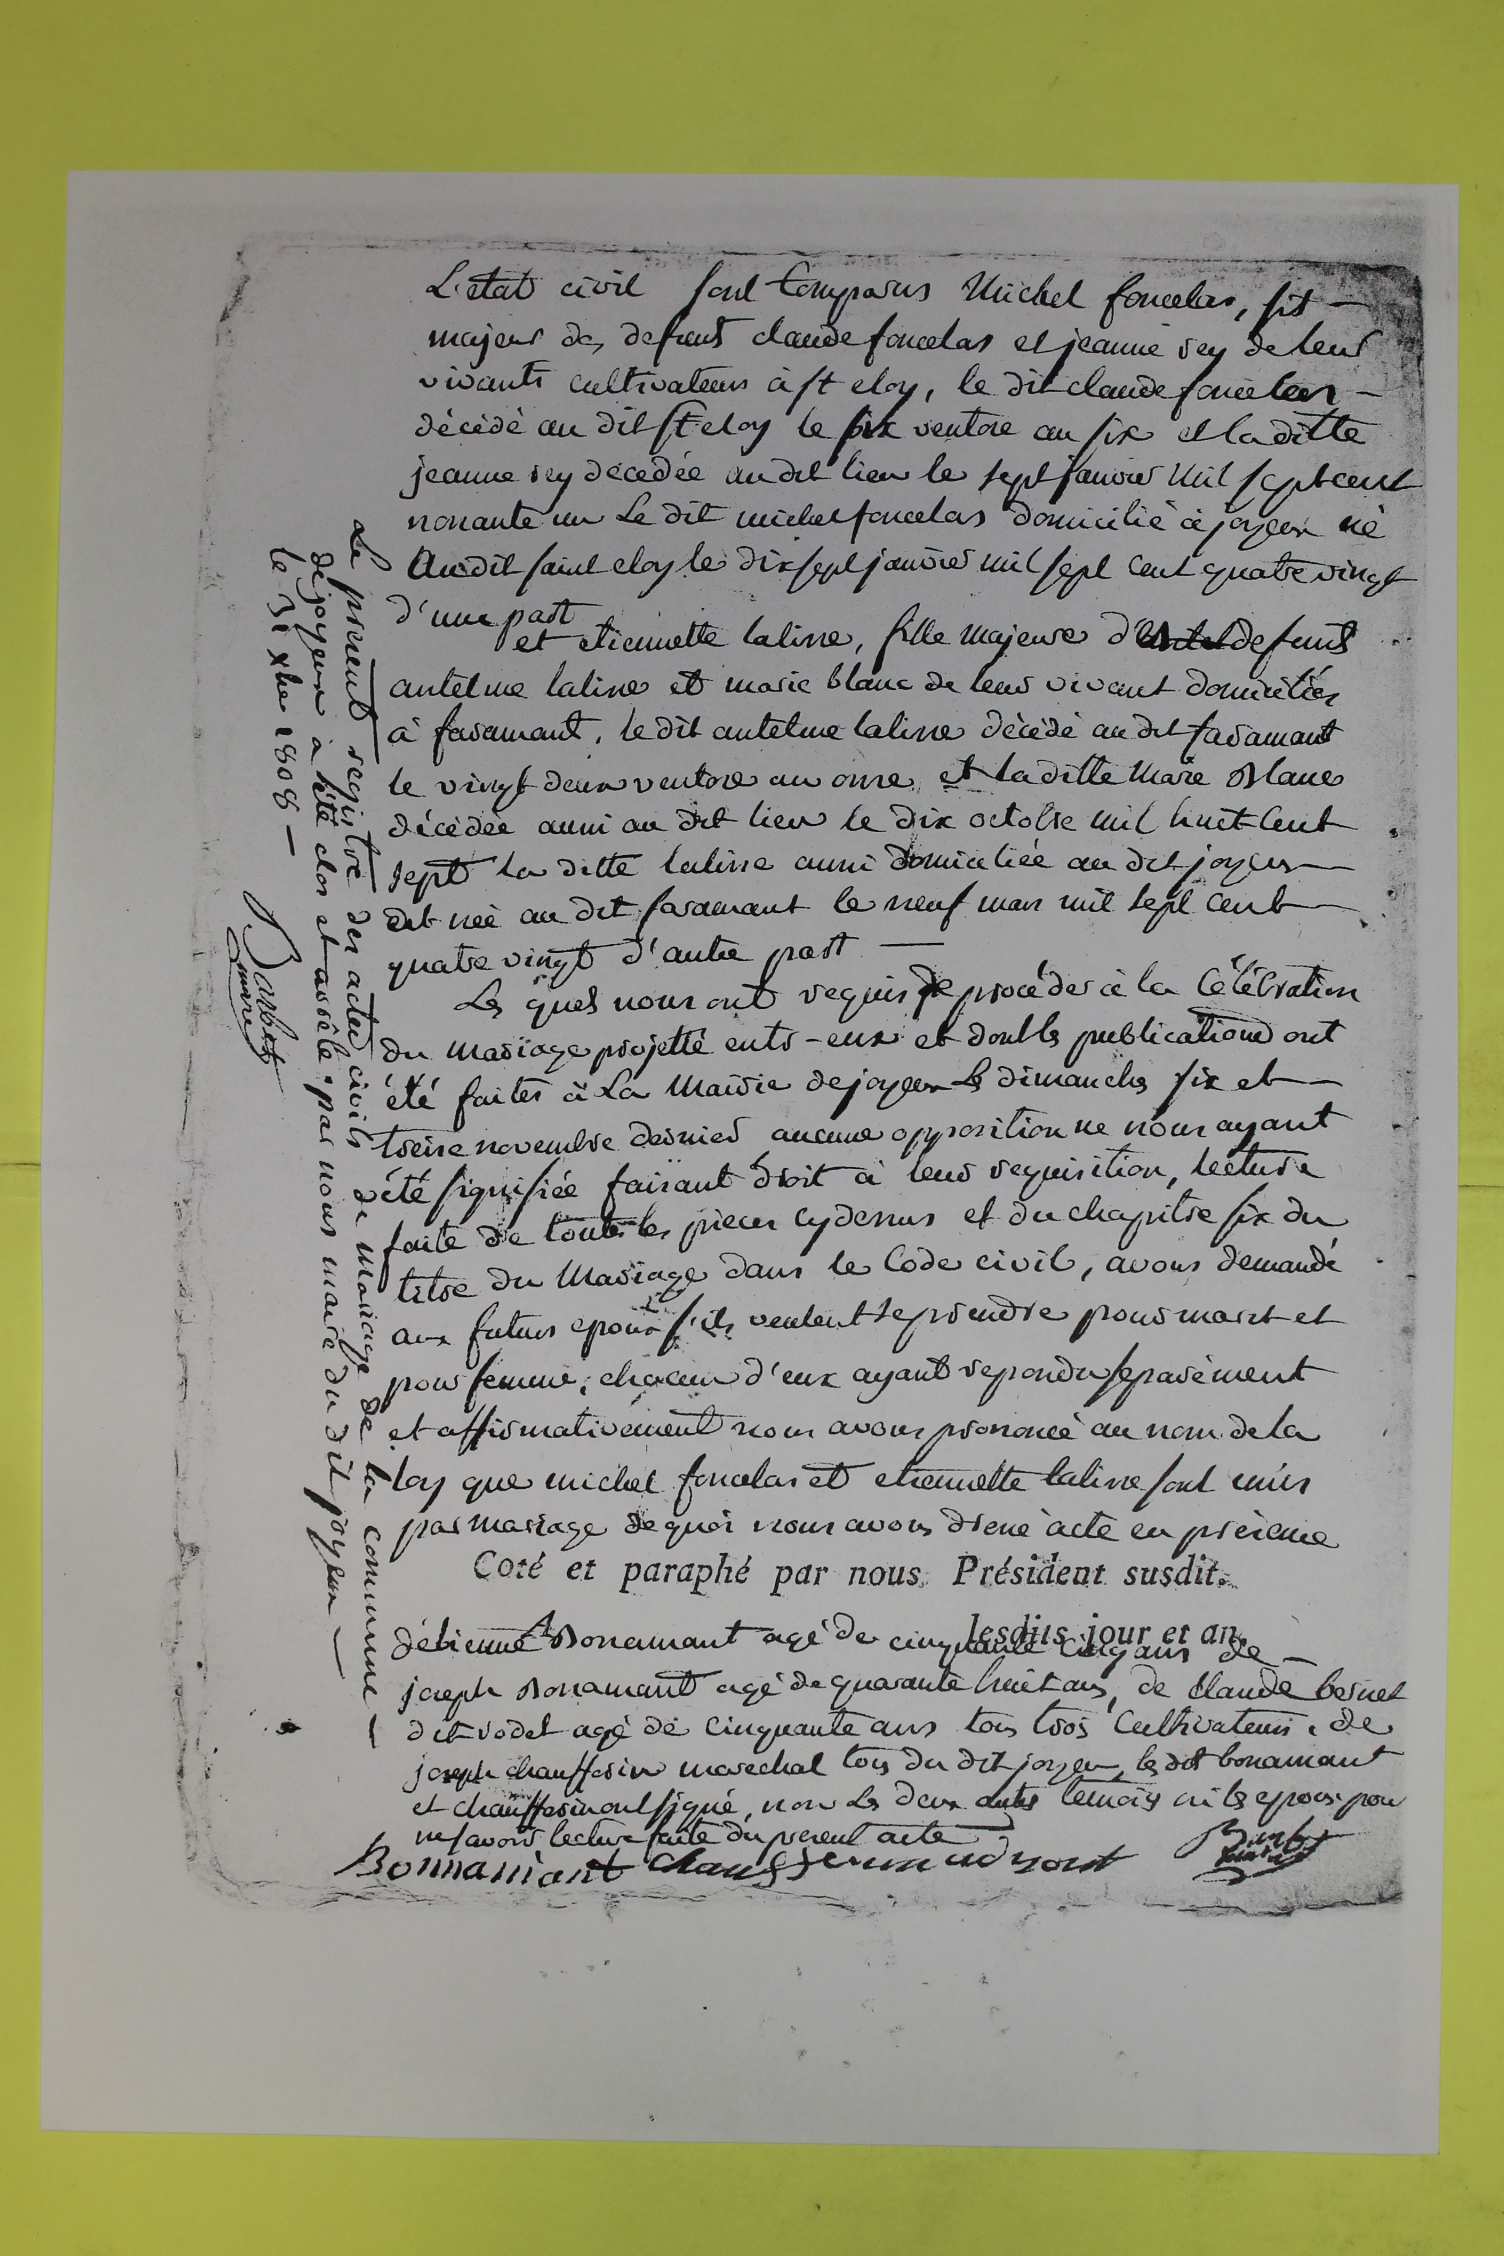 L'état civil sont Comparus Michel foncelas, fils
majeur des defunts claude foncelas et jeanne rey de leur
vivants cultivateurs à st eloy, le dit claude foncelas
décédé au dit st eloy le six ventose an six et la ditte
jeanne rey décédée au dit lieu le sept janvier mil sept cent
nonante un Le dit michel foncelas domicilié à joyeux né
Audit saint eloy le dix sept janvier mil sept cent quatre vingt
d'une part
et etiennette talisse, fille majeure de defunts
antelme talisse et marie blanc de leur vivant domiciliés
à faramant, le dit antelme talisse décédé au dit faramant
le vingt deux ventose an onze, et la ditte Marie Blanc
décédée aussi au dit lieu le dix octobre mil huit cent
sept la ditte talisse aussi domiciliée au dit joyeux
est née au dit faramant le neuf mars mil sept cent
quatre vingt d'autre part
Les quels nous ont requis de procéder à la Célébration
du mariage projetté entr-eux et dont les publications ont
été faites à La Mairie de joyeux Les dimanches six et
treise novembre dernier aucune opposition ne nous ayant
été signifiée faisant droit à leur requisition, lecture
faite de toutes les pieces cy dessus et du chapitre six du
titre du Mariage dans le Code civil, avons demandé
aux futurs epoux s'ils veulent se prendre pour mari et
pour femme, chacun d'eux ayant repondu separément
et affirmativement nous avons prononcé au nom de la
loy que michel foncelas et etiennette talisse sont unis
par mariage de quoi nous avons dréné acte en présence
Coté et paraphé par nous Président susdit.
lesdits jour et an.
d'étienne Bonamant agé de cinquante cinq ans de
joseph Bonamant agé de quarante huit ans, de Claude bernet
dit rodet agé de cinquante ans tous trois Cultivateurs, de
joseph chaufferin marechal tous du dit joyeux, les dit bonamant
et chaufferin ont signé, non les deux autres temoins ni les epoux pour
ne savoir lecture faite du present acte
Bonnamant
Le present registre des actes civils de mariage de la commune
de joyeux à été clos et arrêté par nous maire du dit joyeux
le 31 xbre 1808
Barbet
maire